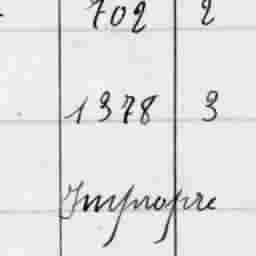 702 2
1378 3
Impropre